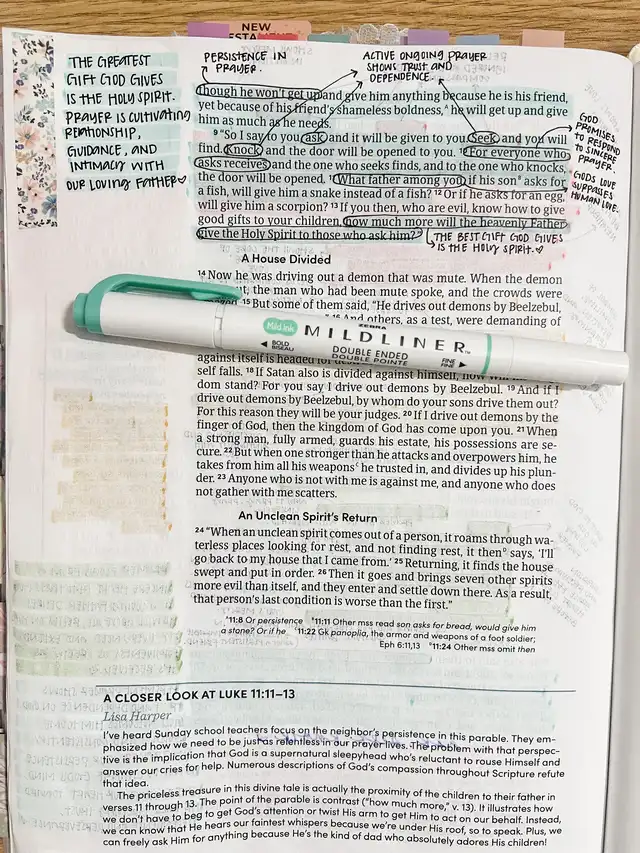 NEW
THE GREATEST
GIFT GOD GIVES
IS THE HOLY SPIRIT.
PRAYER IS CULTIVATING
RELATIONSHIP,
GUIDANCE, AND
INTIMACY WITH
OUR LOVING FATHER♡
PERSISTENCE IN
PRAYER.
ACTIVE ONGOING PRAYER
SHOWS TRUST AND
DEPENDENCE.
though he won't get up and give him anything because he is his friend,
yet because of his friend's shameless boldness,ᴬ he will get up and give
him as much as he needs.
⁹ "So I say to you, ask, and it will be given to you. Seek, and you will
find. Knock, and the door will be opened to you. ¹⁰ For everyone who
asks receives, and the one who seeks finds, and to the one who knocks,
the door will be opened. ¹¹ What father among you, if his sonᴮ asks for
a fish, will give him a snake instead of a fish? ¹² Or if he asks for an egg,
will give him a scorpion? ¹³ If you then, who are evil, know how to give
good gifts to your children, how much more will the heavenly Father
give the Holy Spirit to those who ask him?"
GOD
PROMISES
TO RESPOND
TO SINCERE
PRAYER.
GODS LOVE
HUMAN LOVE.
THE BEST GIFT GOD GIVES
IS THE HOLY SPIRIT.♡
A House Divided
¹⁴ Now he was driving out a demon that was mute. When the demon
the man who had been mute spoke, and the crowds were
¹⁵ But some of them said, "He drives out demons by Beelzebul,
And others, as a test, were demanding of
Mild Ink
ZEBRA
MILDLINER™
BOLD
BISEAU
DOUBLE ENDED
DOUBLE POINTE
FINE
FINE
against itself is headed for
self falls. ¹⁸ If Satan also is divided against himself, how will his
dom stand? For you say I drive out demons by Beelzebul. ¹⁹ And if I
drive out demons by Beelzebul, by whom do your sons drive them out?
For this reason they will be your judges. ²⁰ If I drive out demons by the
finger of God, then the kingdom of God has come upon you. ²¹ When
a strong man, fully armed, guards his estate, his possessions are se-
cure. ²² But when one stronger than he attacks and overpowers him, he
takes from him all his weaponsᶜ he trusted in, and divides up his plun-
der. ²³ Anyone who is not with me is against me, and anyone who does
not gather with me scatters.
An Unclean Spirit's Return
²⁴ "When an unclean spirit comes out of a person, it roams through wa-
terless places looking for rest, and not finding rest, it thenᴰ says, 'I'll
go back to my house that I came from.' ²⁵ Returning, it finds the house
swept and put in order. ²⁶ Then it goes and brings seven other spirits
more evil than itself, and they enter and settle down there. As a result,
that person's last condition is worse than the first."
ᴬ11:8 Or persistence ᴮ11:11 Other mss read son asks for bread, would give him
a stone? Or if he ᶜ11:22 Gk panoplia, the armor and weapons of a foot soldier;
Eph 6:11,13 ᴰ11:24 Other mss omit then
A CLOSER LOOK AT LUKE 11:11–13
Lisa Harper
I've heard Sunday school teachers focus on the neighbor's persistence in this parable. They em-
phasized how we need to be just as relentless in our prayer lives. The problem with that perspec-
tive is the implication that God is a supernatural sleepyhead who's reluctant to rouse Himself and
answer our cries for help. Numerous descriptions of God's compassion throughout Scripture refute
that idea.
The priceless treasure in this divine tale is actually the proximity of the children to their father in
verses 11 through 13. The point of the parable is contrast ("how much more," v. 13). It illustrates how
we don't have to beg to get God's attention or twist His arm to get Him to act on our behalf. Instead,
we can know that He hears our faintest whispers because we're under His roof, so to speak. Plus, we
can freely ask Him for anything because He's the kind of dad who absolutely adores His children!